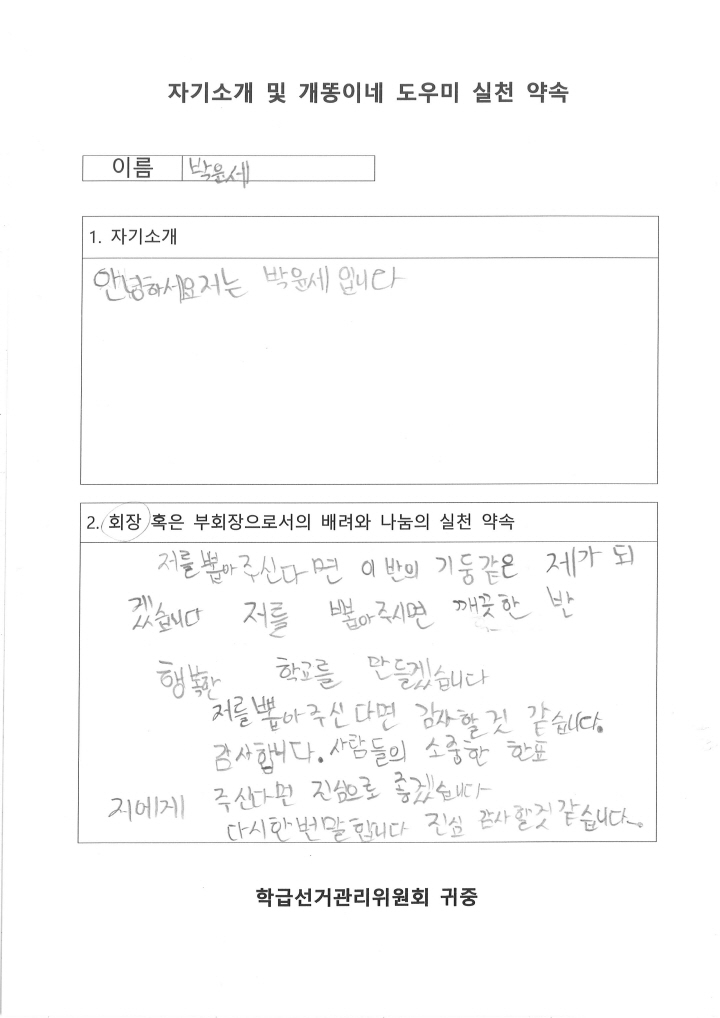 자기소개 및 개똥이네 도우미 실천 약속
이름 박윤세
1. 자기소개
안녕하세요저는 박윤세 입니다
2. 회장 혹은 부회장으로서의 배려와 나눔의 실천 약속
저를뽑아주신다면 이 반의 기둥같은 제가 되
겠습니다 저를 뽑아주시면 깨끗한 반
행복한 학교를 만들겠습니다
저를뽑아주신다면 감사할것 같습니다.
감사합니다. 사람들의 소중한 한표
저에게 주신다면 진심으로 좋겠습니다
다시한번말합니다 진심 감사할것같습니다.
학급선거관리위원회 귀중